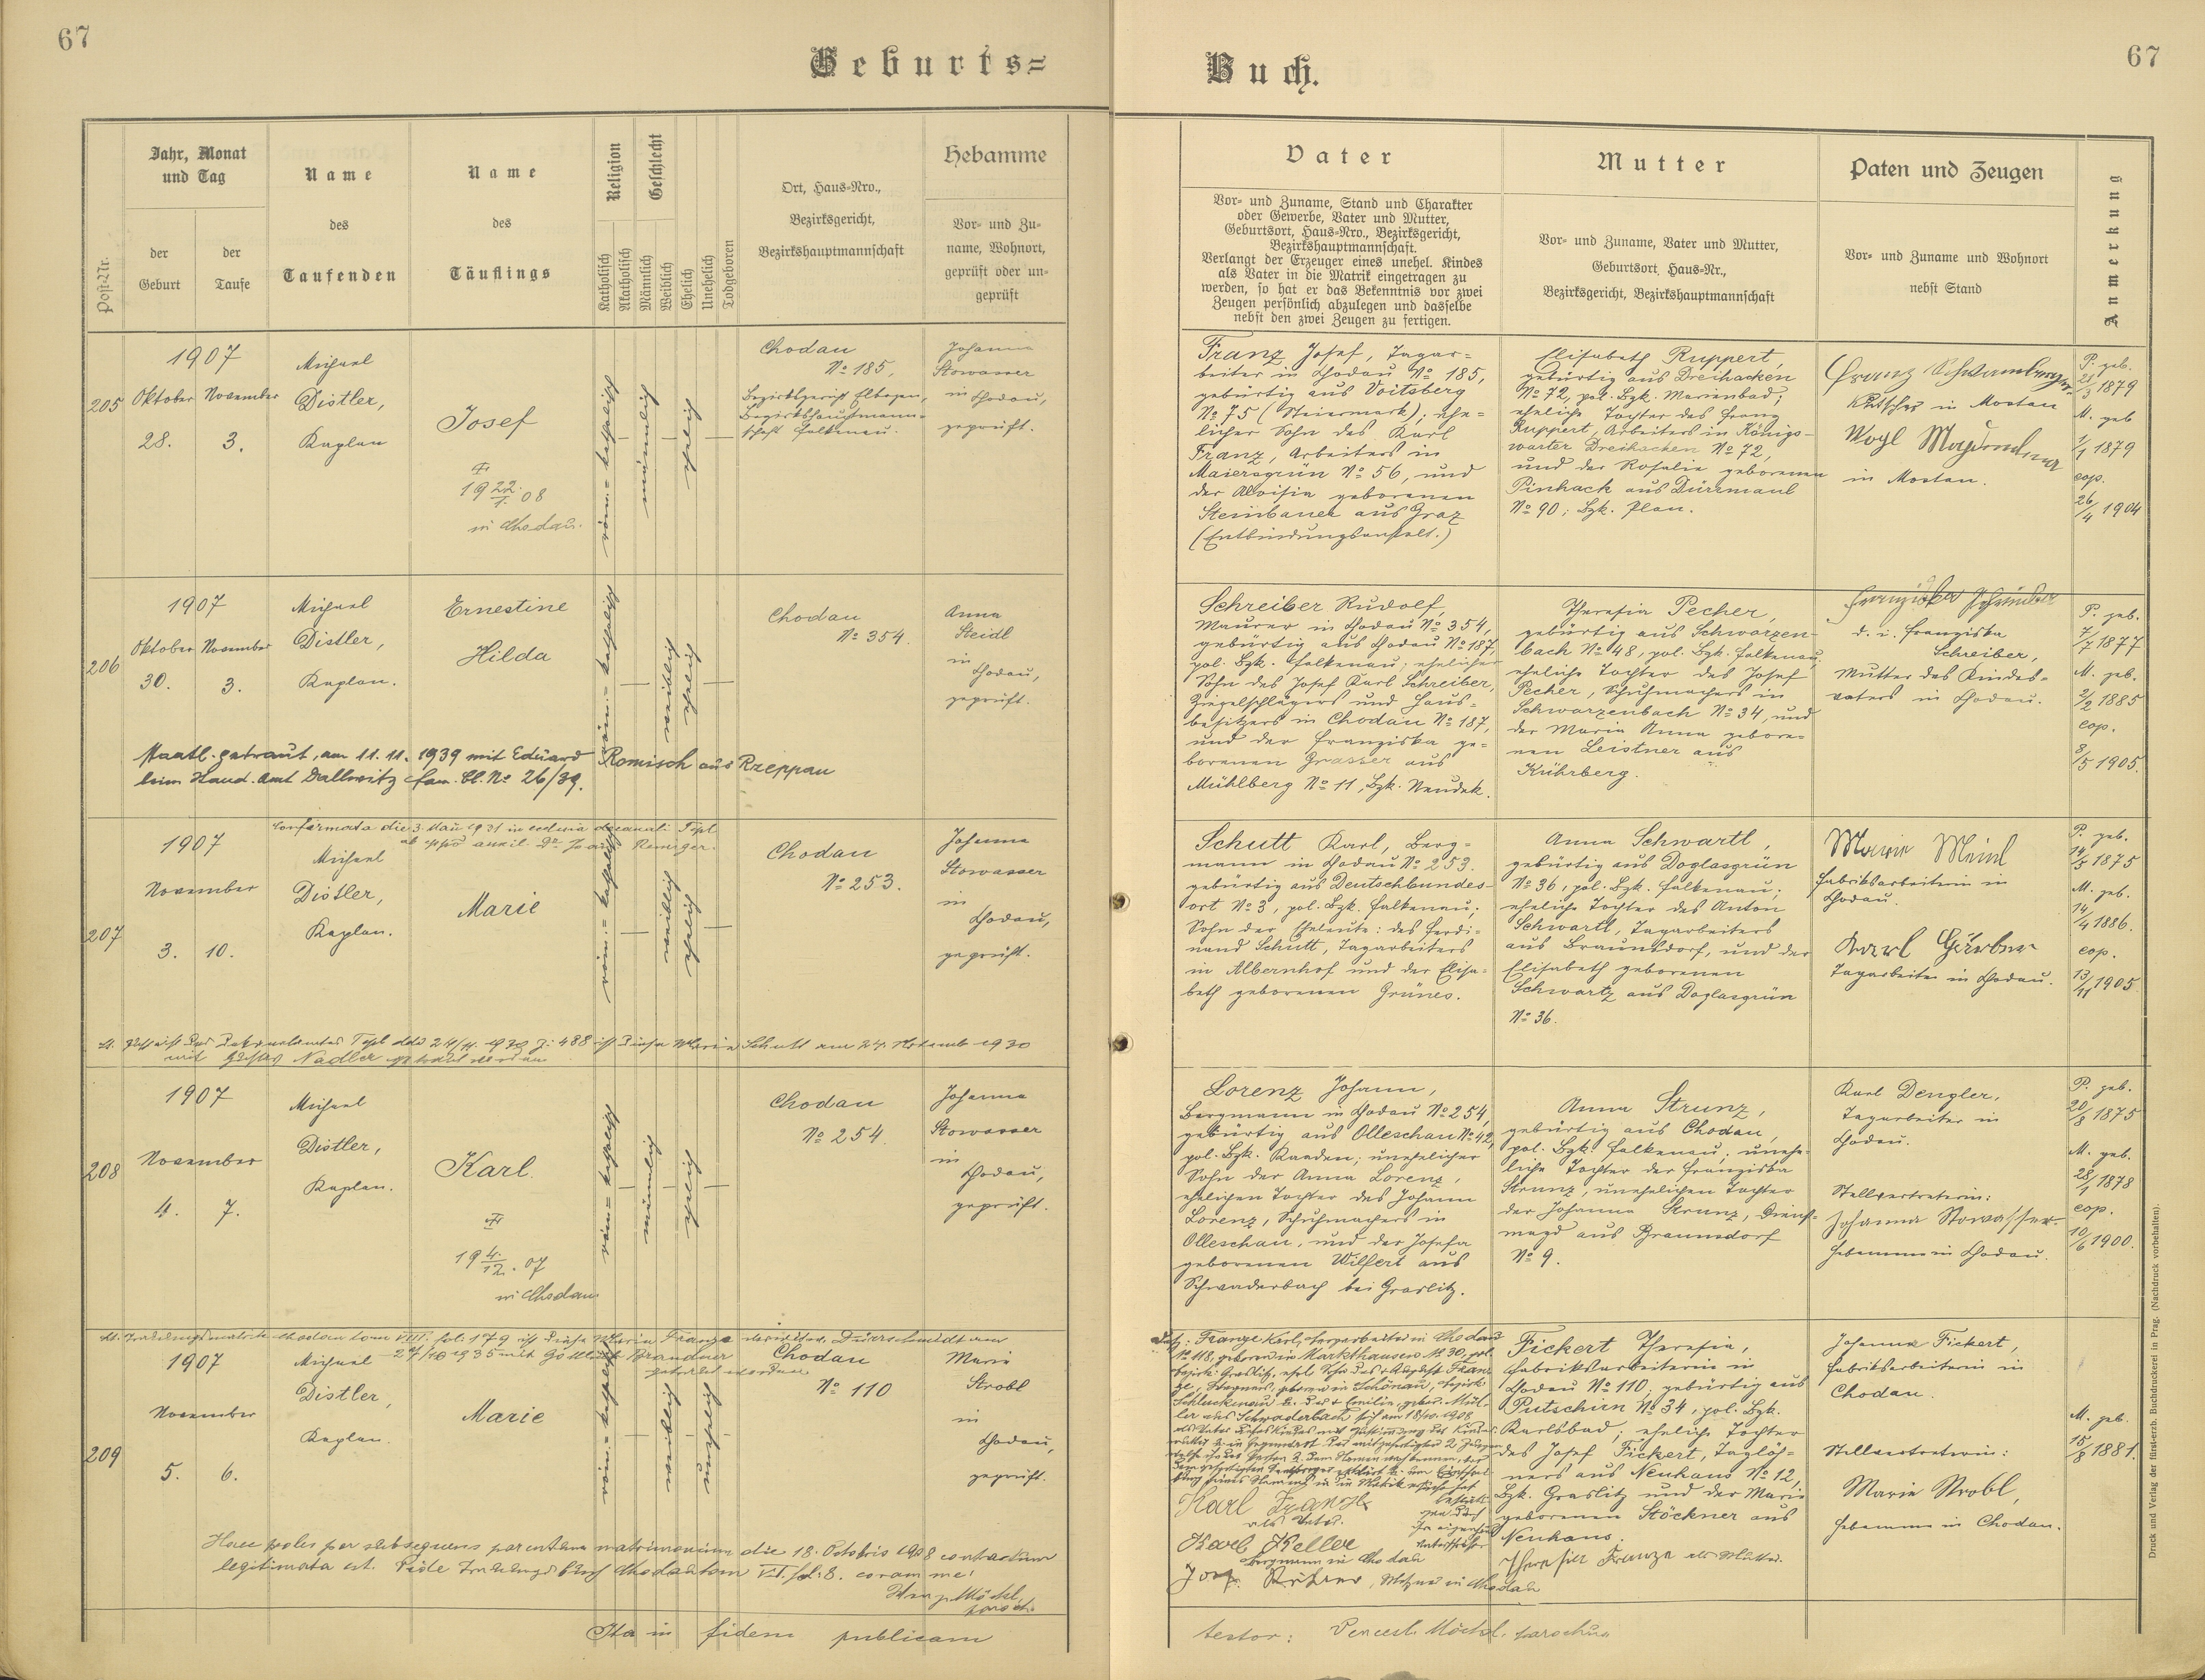 67
Geburts=
Jahr, Monat
und Tag
der
Geburt
der
Taufe
Post-Nr.
Name
des
Taufenden
Name
des
Täuflings
Religion
Katholisch
Akatholisch
Geschlecht
Männlich
Weiblich
Ehelich
Unehelich
Todgeboren
Ort, Haus=Nro.,
Bezirksgericht,
Bezirkshauptmannschaft
Hebamme
Vor= und Zu=
name, Wohnort,
geprüft oder un=
geprüft
205
1907
Oktober November
28. 3.
Michael
Distler,
Kaplan
Josef
1922/1.08
in Chodau.
röm.= katholisch
männlich
ehelich
Chodau
No 185,
Bezirksgericht Elbogen,
Bezirkshauptmann=
schaft Falkenau.
Johanna
Stowasser
in
Chodau,
geprüft.
206
1907
Oktober November
30. 3.
Michael
Distler,
Kaplan.
Ernestine
Hilda
röm.= katholisch
weiblich
ehelich
Chodau
No 354.
Anna
Steidl
in
Chodau,
geprüft.
Staatl. getraut, am 11.11.1939 mit Eduard Romisch aus Rzeppau
beim Stand. Amt Dallwitz Fam. Bl. No 26/39.
207
1907
November
3. 10.
Michael
Distler,
Kaplan.
Marie
röm.= katholisch
weiblich
ehelich
Chodau
No 253.
Johanna
Stowasser
in
Chodau,
geprüft.
ist diese Marie Schutt am 24. November 1930
mit Gustav Nadler getraut worden
208
1907
November
4. 7.
Michael
Distler,
Kaplan.
Karl.
19 4./12. 07
in Chodau
röm.= katholisch
männlich
ehelich
Chodau
No 254.
Johanna
Stowasser
in
Chodau,
geprüft.
209
1907
November
5. 6.
Michael
Distler,
Kaplan.
Marie
röm.= katholisch
weiblich
unehelich
Chodau
No 110
Marie
Strobl
in
Chodau,
geprüft.
Haec proles per subsequens parentum matrimonium die 18. Octobris 1908 contractum
legitimata est. coram me:
Ita in fidem publicam
67
Buch.
Vater
Vor= und Zuname, Stand und Charakter
oder Gewerbe, Vater und Mutter,
Geburtsort, Haus=Nro., Bezirksgericht,
Bezirkshauptmannschaft.
Verlangt der Erzeuger eines unehel. Kindes
als Vater in die Matrik eingetragen zu
werden, so hat er das Bekenntnis vor zwei
Zeugen persönlich abzulegen und dasselbe
nebst den zwei Zeugen zu fertigen.
Mutter
Vor= und Zuname, Vater und Mutter,
Geburtsort, Haus=Nr.,
Bezirksgericht, Bezirkshauptmannschaft
Paten und Zeugen
Vor= und Zuname und Wohnort
nebst Stand
Anmerkung
Franz Josef, Tagar=
beiter in Chodau No 185,
gebürtig aus Voitsberg
No 75 (Steiermark); ehe=
licher Sohn des Karl
Franz, Arbeiters in
Maiersgrün No 56, und
der Aloisia geborenen
Steinbauer aus Graz
(Entbindungsanstalt.)
Elisabeth Ruppert,
gebürtig aus Dreihacken
No 72, pol. Bzk. Marienbad;
eheliche Tochter des Franz
Ruppert, Arbeiters in Königs=
warter Dreihacken No 72,
und der Rosalie geborenen
Pinhack aus Dürrmaul
No 90; Bzk. Plan.
Franz
Kutscher in
in
P. geb.
21/3 1879
M. geb
1/1 1879
cop.
26/4 1904
Schreiber Rudolf,
Maurer in Chodau No 354,
gebürtig aus Chodau No 187,
pol. Bzk. Falkenau; ehelicher
Sohn des Josef Karl Schreiber,
Ziegelschlägers und Haus=
besitzers in Chodau No 187,
und der Franziska ge=
borenen Grasser aus
Mühlberg No 11, Bzk. Neudek.
Theresia Pecher,
gebürtig aus Schwarzen=
bach No 48, pol. Bzk. Falkenau;
eheliche Tochter des Josef
Pecher, Schuhmachers in
Schwarzenbach No 34, und
der Maria Anna gebore=
nen Leistner aus
Kührberg.
Franziska Schreiber
d. i. Franziska
Schreiber,
Mutter des Kindes=
vaters in Chodau.
P. geb.
7/7 1877
M. geb.
2/2 1885
cop.
8/5 1905.
Schutt Karl, Berg=
mann in Chodau No 253.
gebürtig aus Deutschbundes=
ort No 3, pol. Bzk. Falkenau;
Sohn der Eheleute: des Ferdi=
nand Schutt, Tagarbeiters
in Albernhof und der Elisa=
beth geborenen Grünes.
Anna Schwartl,
gebürtig aus Doglasgrün
No 36, pol. Bzk. Falkenau;
eheliche Tochter des Anton
Schwartl, Tagarbeiters
aus Braunsdorf, und der
Elisabeth geborenen
Schwartz aus Doglasgrün
No 36.
Marie Meinl
Fabriksarbeiterin in
Chodau.
Karl
Tagarbeiter in Chodau.
P. geb.
14/5 1875
M. geb.
14/4 1886.
cop.
13/11 1905.
Lorenz Johann,
Bergmann in Chodau No 254,
gebürtig aus Olleschau No 42,
pol. Bzk. Kaaden; unehelicher
Sohn der Anna Lorenz,
ehelichen Tochter des Johann
Lorenz, Schuhmachers in
Olleschau, und der Josefa
geborenen Wilfert aus
Schwaderbach bei Graslitz.
Anna Strunz,
gebürtig aus Chodau,
pol. Bzk. Falkenau; unehe=
liche Tochter der Franziska
Strunz, unehelichen Tochter
der Johanna Strunz, Dienst=
magd aus Braunsdorf
No 9.
Karl Dengler,
Tagarbeiter in
Chodau.
Stellvertreterin:
Johanna Stowasser
Hebamme in Chodau.
P. geb.
20/8 1875
M. geb.
28/1 1878
cop.
10/6 1900.
Karl Franze
als Vater.
Karl Keller
Bergmann in Chodau
Fickert Theresia,
Fabriksarbeiterin in
Chodau No 110; gebürtig aus
Putschirn No 34, pol. Bzk.
Karlsbad; eheliche Tochter
des Josef Fickert, Taglöh=
ners aus Neuhaus No 12,
Bzk. Graslitz und der Marie
geborenen Stöckner aus
Neuhaus.
Theresia Franze als Mutter.
Johanna Fickert,
Fabriksarbeiterin in
Chodau.
Stellvertreterin:
Marie Strobl,
Hebamme in Chodau.
M. geb.
15/8 1881.
testor: Vencesl. Möckl, parochus
Druck und Verlag der fürst-erzb. Buchdruckerei in Prag. (Nachdruck vorbehalten).